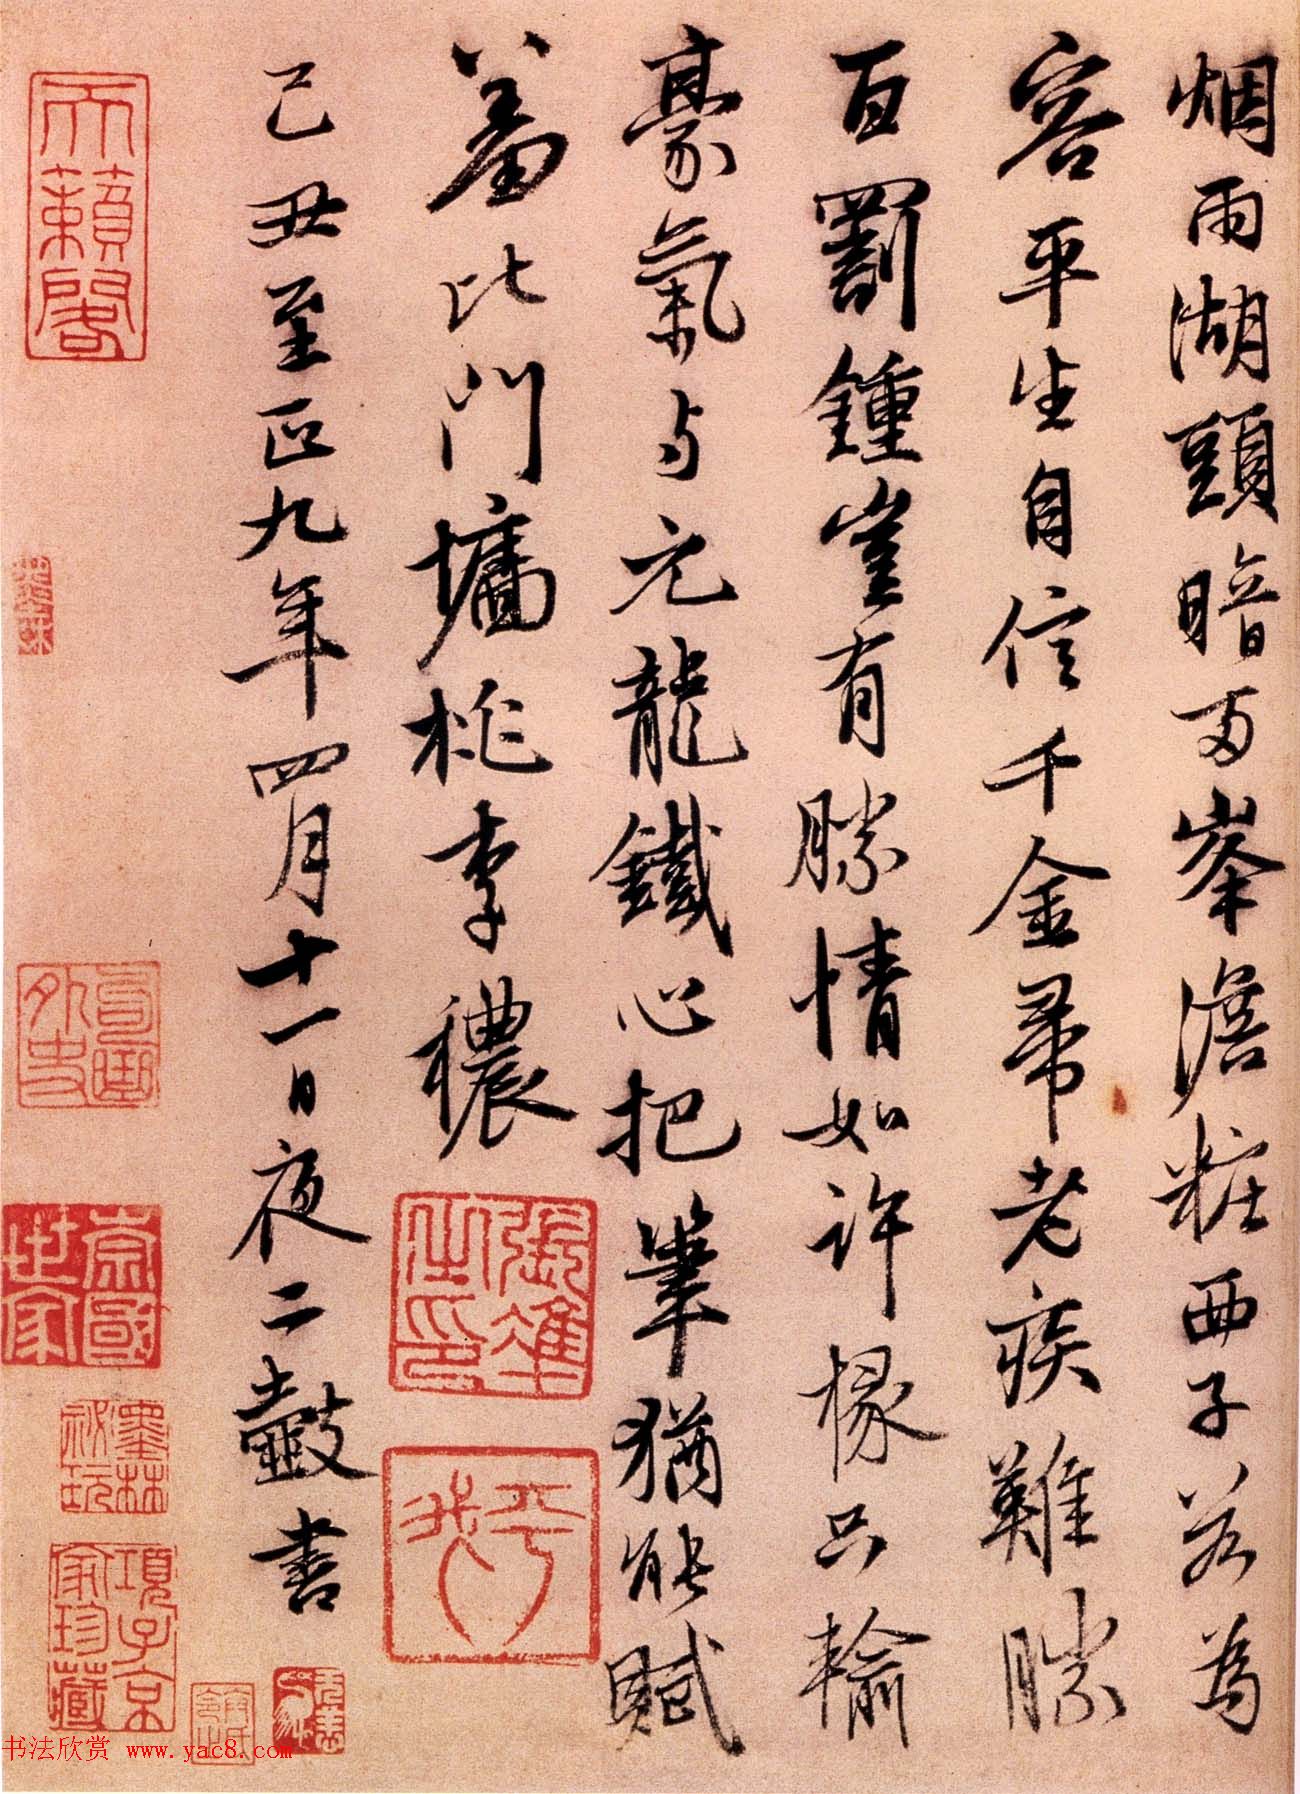 烟雨湖頭暗兩峯澹粧西子若為
容平生自信千金帚老疾難勝
百罰鍾豈有勝情如許椽只輸
豪氣与元龍鐵心把筆猶能賦
羞比門墻桃李穠
己丑至正九年四月十一日夜二鼓書
天籟閣
墨林祕玩
項子京家珍藏
书法欣赏 www.yac8.com